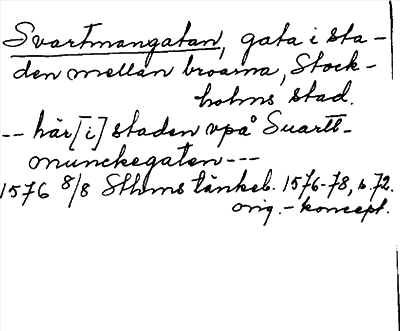 Svartmangatan, gata i sta-
den mellan broarna, Stock-
holms stad.
-- här [i] staden vpå Suartt-
munckegaten ---
1576 8/8 Sthms tänkeb. 1576-78, s. 72.
orig.-koncept.